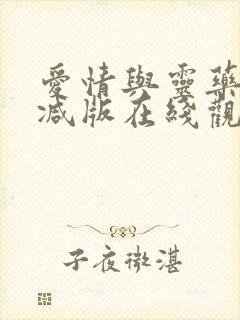 愛情與靈藥
減版在綫觀
子夜微湛